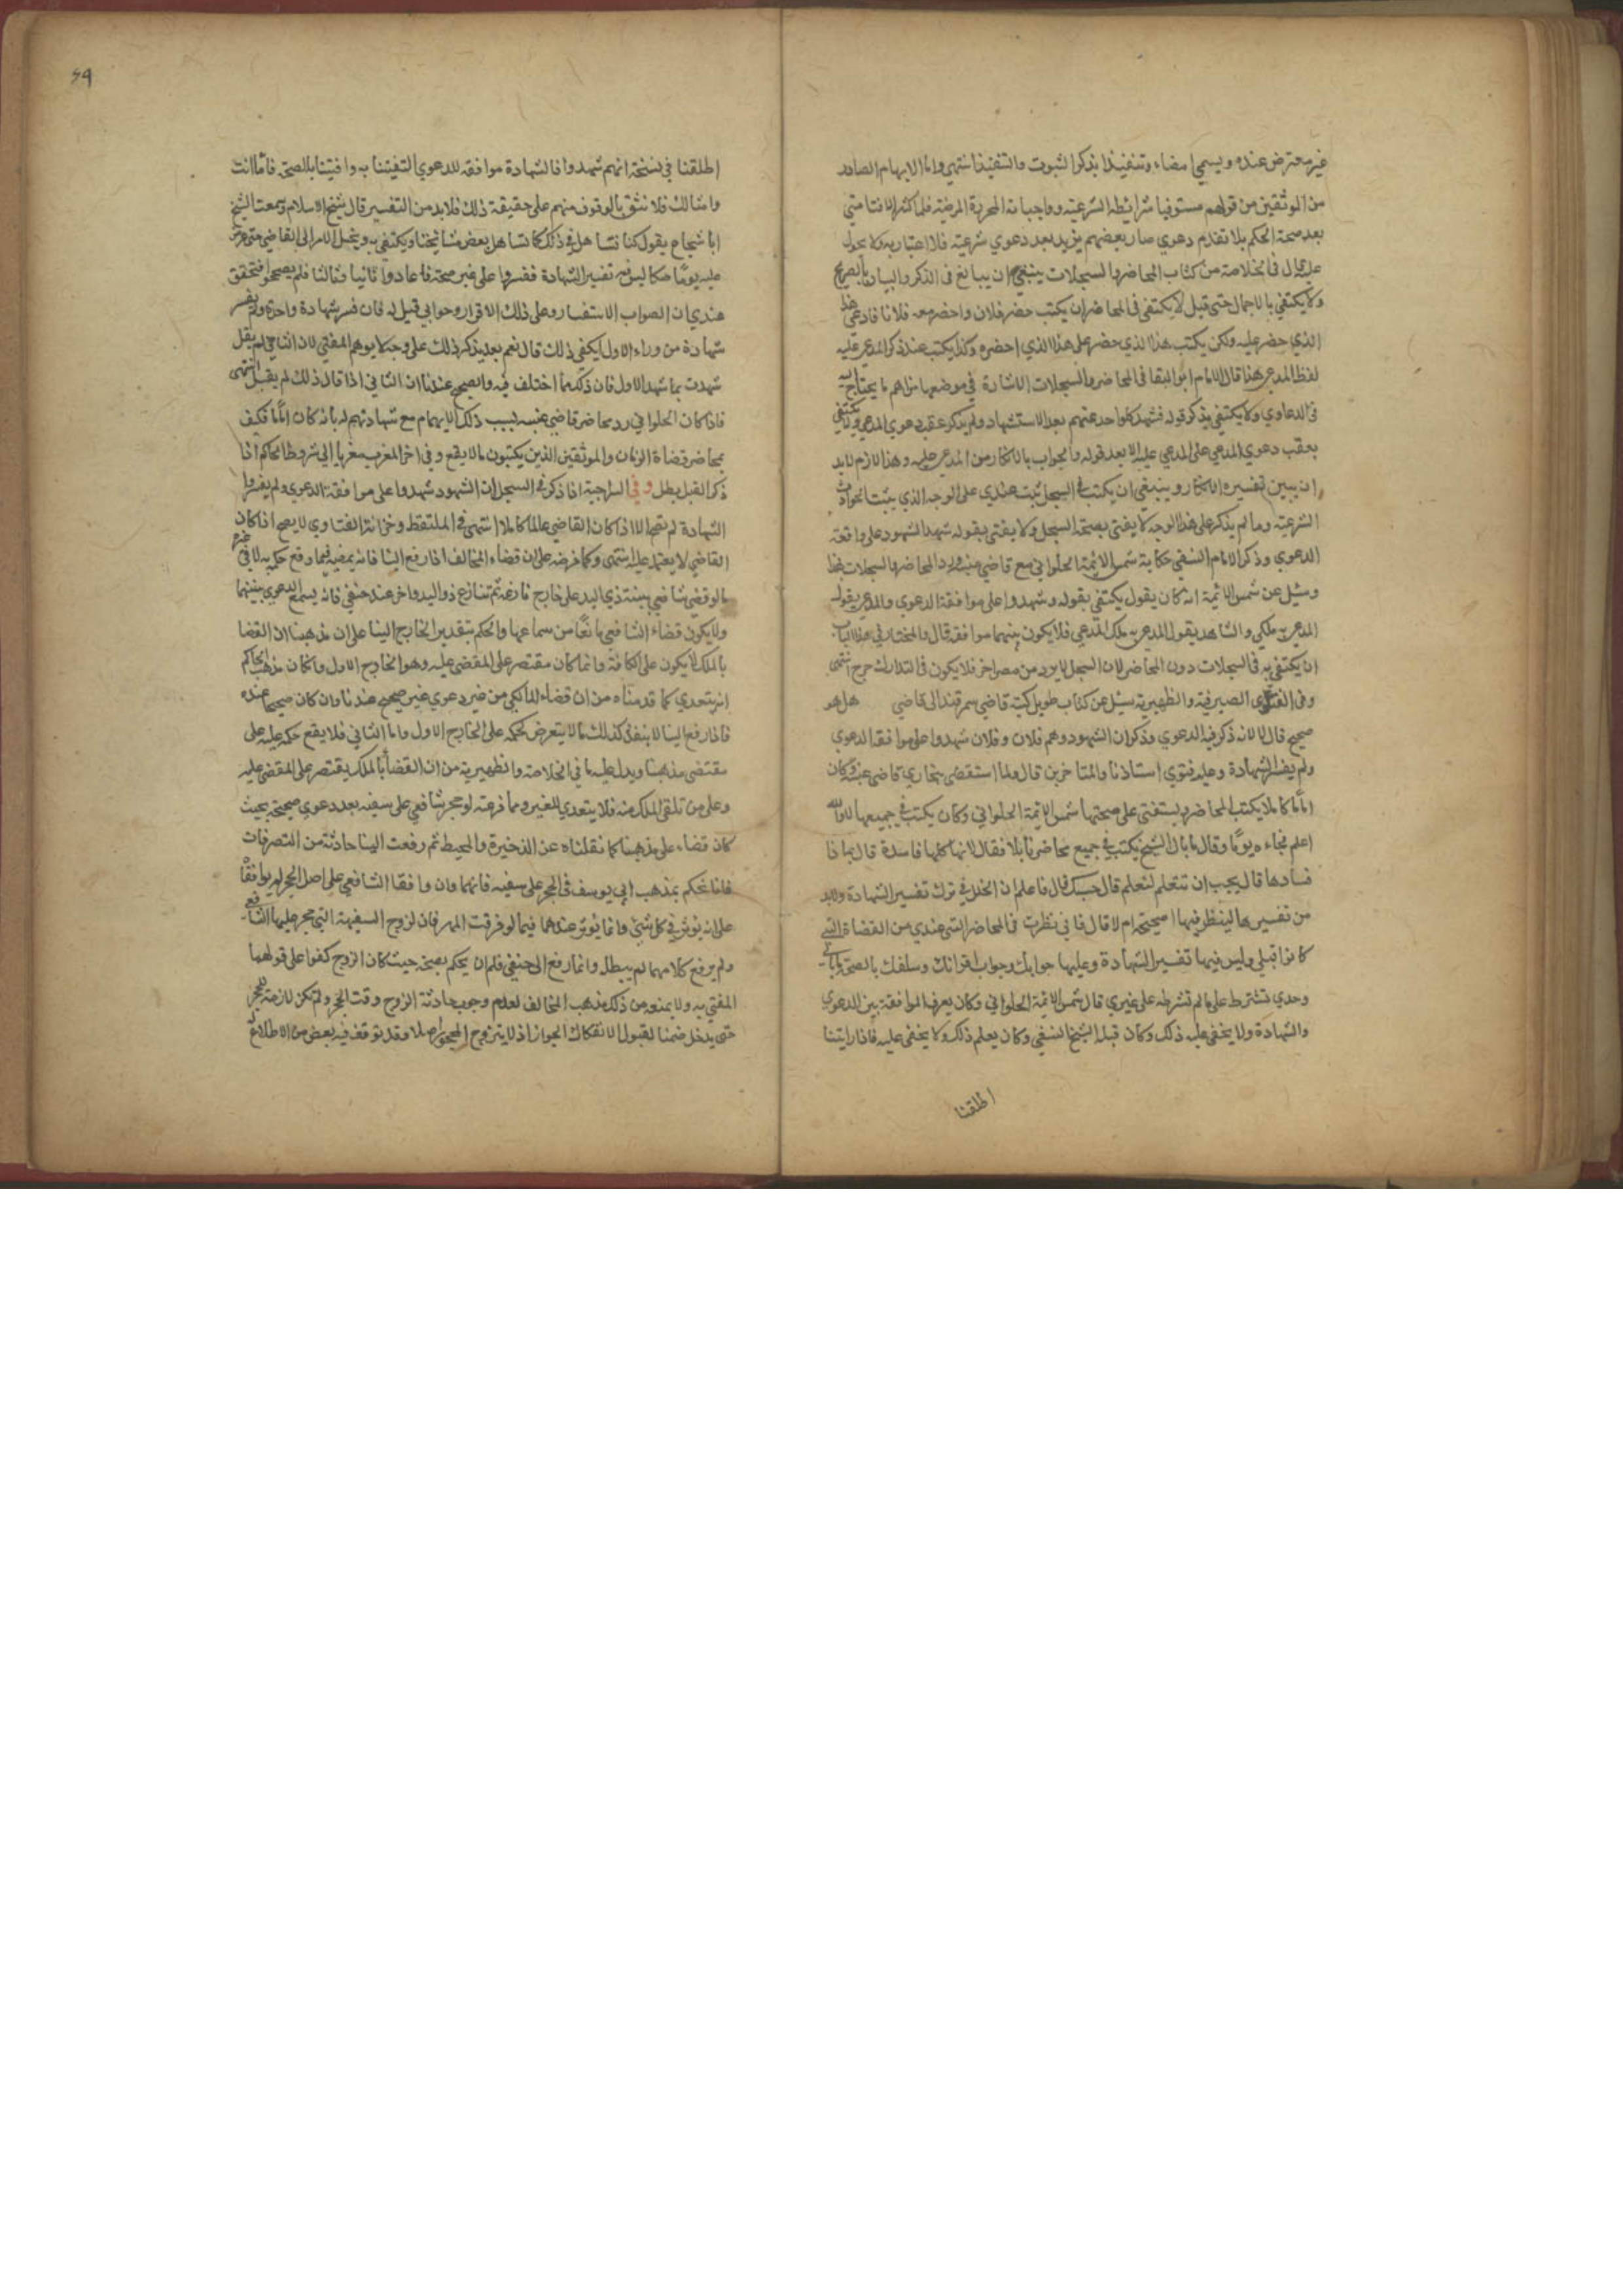 غير معترض عنده ويسمى امضاء وتنفيذا بذكر الثبوت والتنفيذ انتهى واما الابهام الصادر
من الموثقين من قولهم مستوفيا شرائطه الشرعية وواجباته المحررة المرضية فلما كثر الافتا متى
بعد صحة الحكم بلا تقدم دعوي صار بعضهم يزيد بعد دعوي شرعية فلا اعتبار به ولا يعول
عليه قال في الخلاصة من كتاب المحاضر والسجلات ينبغي ان يبالغ في الذكر والبيان بالصريح
ولا يكتفي بالاجمال حتى قيل لا يكتفى في المحاضر ان يكتب حضر فلان واحضر معه فلانا فادعى هذا
الذي حضر عليه ولكن يكتب هذا الذي حضر على هذا الذي احضره وكذا يكتب عند ذكر المدعى عليه
لفظ المدعى هذا قال الامام ابو البقا في المحاضر والسجلات الاشارة في موضعها من اهم ما يحتاج اليه
في الدعاوي ولا يكتفي بذكر قوله فشهد كل واحد منهم بعد الاستشهاد ولم يذكر عقب دعوي المدعي ولا يكتفي
بعقب دعوي المدعي على المدعي عليه الا بعد قوله والجواب بالانكار من المدعى عليه وهذا لازم لابد
ان يبين تفسيره الانكار وينبغي ان يكتب في السجل ثبت عندي على الوجه الذي يثبت الحوادث
الشرعية وما لم يذكر على هذا الوجه لا يفتى بصحة السجل ولا يفتى بقوله شهد الشهود على واقعة
الدعوي وذكر الامام النسفي حكاية شمس الائمة الحلواني مع قاضي عنبسة ورد المحاضر والسجلات بهذا
وسئل عن شمس الائمة انه كان يقول يكتفي بقوله وشهدوا على موافقة الدعوي والمدعى يقول
المدعى به ملكي والشاهد يقول المدعى به ملك المدعي فلا يكون بينهما موافقة قال والمختار في هذا الباب
ان يكتفي به في السجلات دون المحاضر لان السجل لا يرد من مصر اخر فلا يكون في التدارك حرج انتهى
وفي الفتاوى الصيرفية والظهيرية سئل عن كتاب طويل كتبه قاضي سمرقند الى قاضي هل هو
صحيح قال لا لانه ذكر فيه الدعوي وذكر ان الشهود وهم فلان وفلان شهدوا على موافقة الدعوي
ولم يفسر الشهادة وعليه فتوي استاذنا والمتاخرين قال ولما استقضى بنجاري قاضي عنبسة وكان
اماما كاملا يكتب المحاضر ويستفتى على صحتها شمس الائمة الحلواني وكان يكتب في جميعها لا والله
اعلم فجاءه يوما وقال ما بال الشيخ يكتب في جميع محاضرنا بلا فقال لانها كلها فاسدة قال بماذا
فسادها قال يجب ان تتعلم لنعلم قال حسبك قال فاعلم ان الخلل في ترك تفسير الشهادة ولابد
من تفسيرها لينظر فيها اصحيحة ام لا قال فاني نظرت في المحاضر التي عندي من القضاة الذين
كانوا قبلي وليس فيها تفسير الشهادة وعليها جوابك وجواب اقرانك وسلفك بالصحة
وحدي تشترط علي ما لم تشترطه على غيري قال شمس الائمة الحلواني وكان يعرف الموافقة بين الدعوي
والشهادة ولا يخفى عليه ذلك وكان قبله الشيخ النسفي وكان يعلم ذلك ولا يخفى عليه فاذا رايتنا
اطلقنا
٤٩
اطلقنا في نسخة انهم شهدوا فالشهادة موافقة للدعوي التفيتنا به وافتينا بالصحة فاما انت
وامثالك فلا نثق بالوقوف منهم على حقيقة ذلك فلابد من التفسير قال شيخ الاسلام وسمعت الشيخ
ابا شجاع يقول كنا نتساهل في ذلك كما تساهل بعض مشايخنا ونكتفي به ونحيل الامر الى القاضي حتى عرض
عليه يوما صكا ليس فيه تفسير الشهادة ففسروا على غير صحة فاعادوا ثانيا وثالثا فلم يصححوا فتحقق
عندي ان الصواب الاستفسار وعلى ذلك الاقرار وجوابي قيل له فان فسر شهادة واحد ولم يفسر
شهادة من وراء الاول ايكفي ذلك قال نعم بعد يذكر ذلك على وجه لا يوهم المفتي لان الثاني لم يقل
شهدت بما شهد الاول فان ذلك مما اختلف فيه والصحيح عندنا ان الثاني اذا قال ذلك لم يقبل انتهى
فاذا كان الحلواني رد محاضر قاضي عنبسة بسبب ذلك الابهام مع شهادتهم له بانه كان اماما فكيف
بمحاضر قضاة الزمان والموثقين الذين يكتبون ما لا يقع وفي اخر المغرب معزيا الى شروط الحاكم اذا
ذكر القبل بطل وفي السراجية اذا ذكر في السجل ان الشهود شهدوا على موافقة الدعوي ولم يفسروا
الشهادة لم تصح الا اذا كان القاضي عالما كاملا انتهى في الملتقط وخزانة الفتاوي لا يصح اذا كان
القاضي لا يعتمد عليه انتهى وكما فرضه على ان قضاء المخالف اذا رفع الينا فانه يمضيه فيما وقع حكمه به لا في غيره
ما لو قضى شافعي ببينة ذي اليد على خارج فارغة ثم تنازع ذو اليد واخر عند حنفي فانه يسمع الدعوي بينهما
ولا يكون قضاء الشافعي مانعا من سماعها والحكم بتقدير الخارج الينا على ان مذهبنا ان القضا
بالملك لا يكون على الكافة وانما كان مقتصر على المقضي عليه وهو الخارج الاول وان كان مذهب الحاكم
انه يتعدي كما قدمناه من ان قضاء المالكي من غير دعوي غير صحيح عندنا وان كان صحيحا عنده
فاذا رفع الينا لا ينفذ كذلك ما لا يتعرض لحكمه على الخارج الاول واما الثاني فلا يقع حكمه عليه على
مقتضى مذهبنا ويدل عليه ما في الخلاصة والظهيرية من ان القضاء بالملك يقتصر على المقضي عليه
وعلى من تلقى الملك منه فلا يتعدي للغير ومما فرعته لو حجر شافعي على سفيه بعد دعوي صحيحة بحيث
كان قضاء على مذهبنا كما نقلناه عن الذخيرة والمحيط ثم رفعت الينا حادثة من التصرفات
فاننا نحكم بمذهب ابي يوسف في الحجر على سفيه فانهما وان وافقا الشافعي على اصل الحجر لم يوافقا
على انه يؤثر في كل شيء وانما يؤثر عندهما فيما لو فرقت المهر فان لزوج السفيهة التي حجر عليها الشافعي
ولم يرفع كلامهما لم يبطل وانما رفع الى حنفي فله ان يحكم بصحته حيث كان الزوج كفوا على قولهما
المفتى به ولا يمنعه من ذلك مذهب المخالف لعدم وجوب حادثة الزوج وقت الحجر ولم تكن لازمة للحجر
حتى يدخل ضمنا لقبول الانفكاك الجواز اذ لا يتزوج المحجور اصلا وقد توقف فيه بعض من لا اطلاع